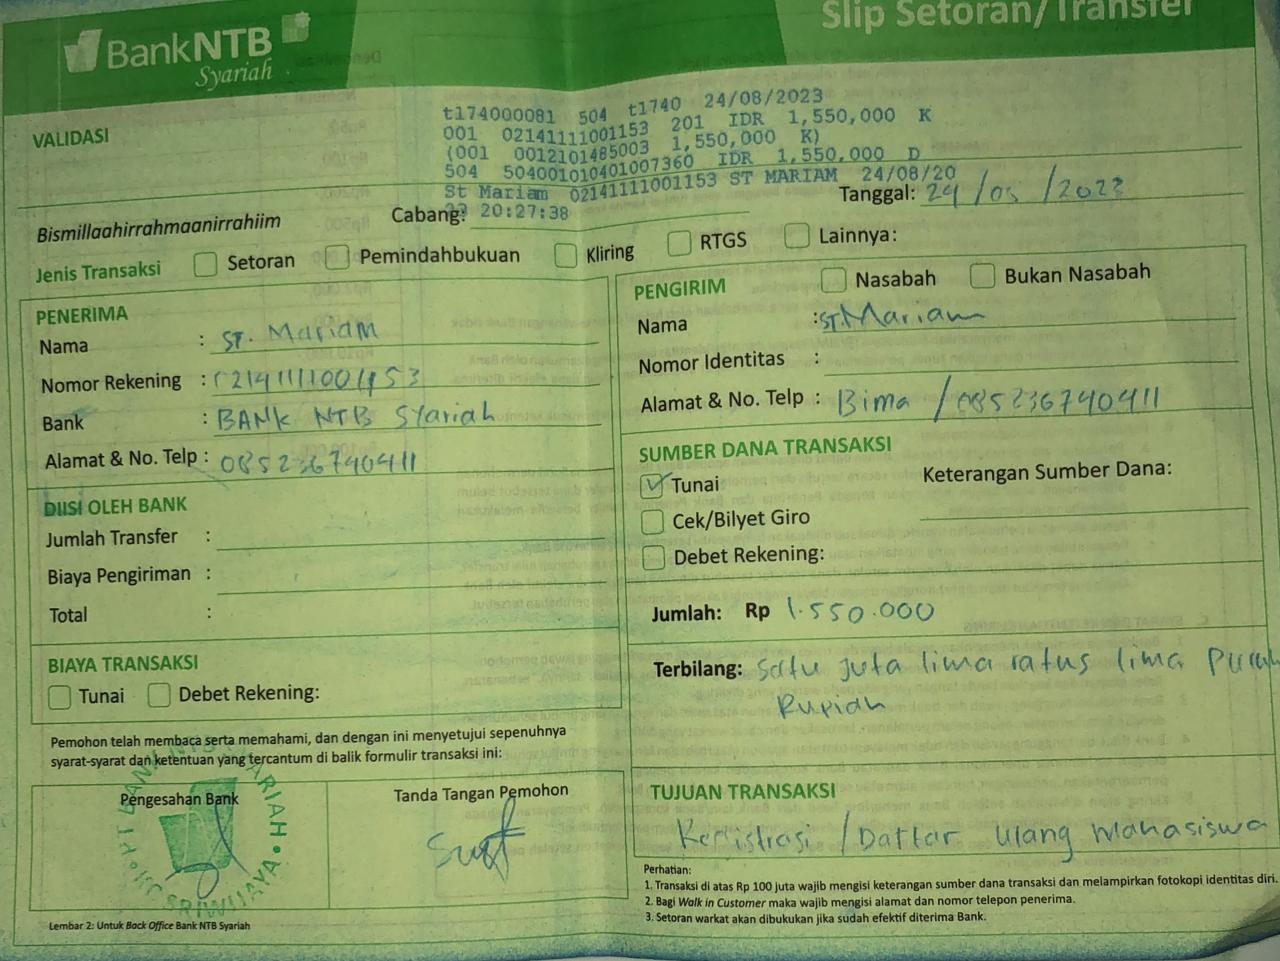 BankNTB
Syariah
Slip Setoran/Transfer
VALIDASI
t174000081 504 t1740 24/08/2023
001 02141111001153 201 IDR 1,550,000 K
(001 0012101485003 1,550,000 K)
504 504001010401007360 IDR 1,550,000 D
St Mariam 02141111001153 ST MARIAM 24/08/20
23 20:27:38
Bismillaahirrahmaanirrahiim
Cabang:
Tanggal: 24/05/2023
Jenis Transaksi Setoran Pemindahbukuan Kliring RTGS Lainnya:
PENERIMA
Nama : ST. Mariam
Nomor Rekening : 02141111001153
Bank : BANK NTB Syariah
Alamat & No. Telp : 085236740411
DIISI OLEH BANK
Jumlah Transfer :
Biaya Pengiriman :
Total :
BIAYA TRANSAKSI
Tunai Debet Rekening:
Pemohon telah membaca serta memahami, dan dengan ini menyetujui sepenuhnya
syarat-syarat dan ketentuan yang tercantum di balik formulir transaksi ini:
Pengesahan Bank
Tanda Tangan Pemohon
KC SRIWIJAYA
Lembar 2: Untuk Back Office Bank NTB Syariah
PENGIRIM Nasabah Bukan Nasabah
Nama : ST. Mariam
Nomor Identitas :
Alamat & No. Telp : Bima / 085236740411
SUMBER DANA TRANSAKSI
Tunai
Keterangan Sumber Dana:
Cek/Bilyet Giro
Debet Rekening:
Jumlah: Rp 1.550.000
Terbilang: Satu juta lima ratus lima Puluh
Rupiah
TUJUAN TRANSAKSI
Registrasi / Daftar ulang Mahasiswa
Perhatian:
1. Transaksi di atas Rp 100 juta wajib mengisi keterangan sumber dana transaksi dan melampirkan fotokopi identitas diri.
2. Bagi Walk in Customer maka wajib mengisi alamat dan nomor telepon penerima.
3. Setoran warkat akan dibukukan jika sudah efektif diterima Bank.